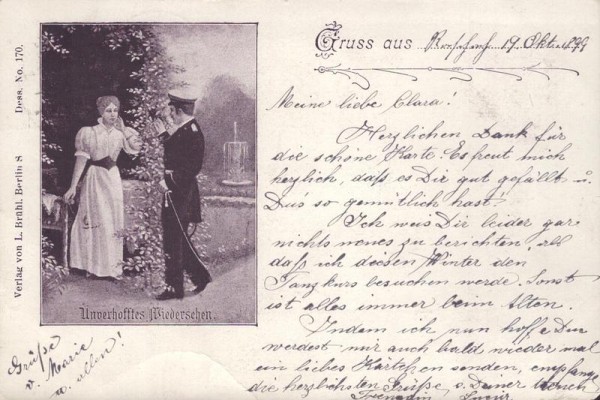 Verlag von L. Brühl, Berlin S Dess. No. 170.
Unverhofftes Wiedersehen.
Gruss aus 19. Okt. 1899
Meine liebe Clara!
Herzlichen Dank für
die schöne Karte. Es freut mich
herzlich, daß es Dir gut gefällt u.
Dus so gemütlich hast.
Ich weis Dir leider gar
nichts neues zu berichten, als
daß ich diesen Winter den
Tanzkurs besuchen werde. Sonst
ist alles immer beim Alten.
Indem ich nun hoffe Du
werdest mir auch bald wieder mal
ein liebes Kärtchen senden, empfange
die herzlichsten Grüße, v. Deiner
Freundin
Grüße
v. Marie
u. allen!